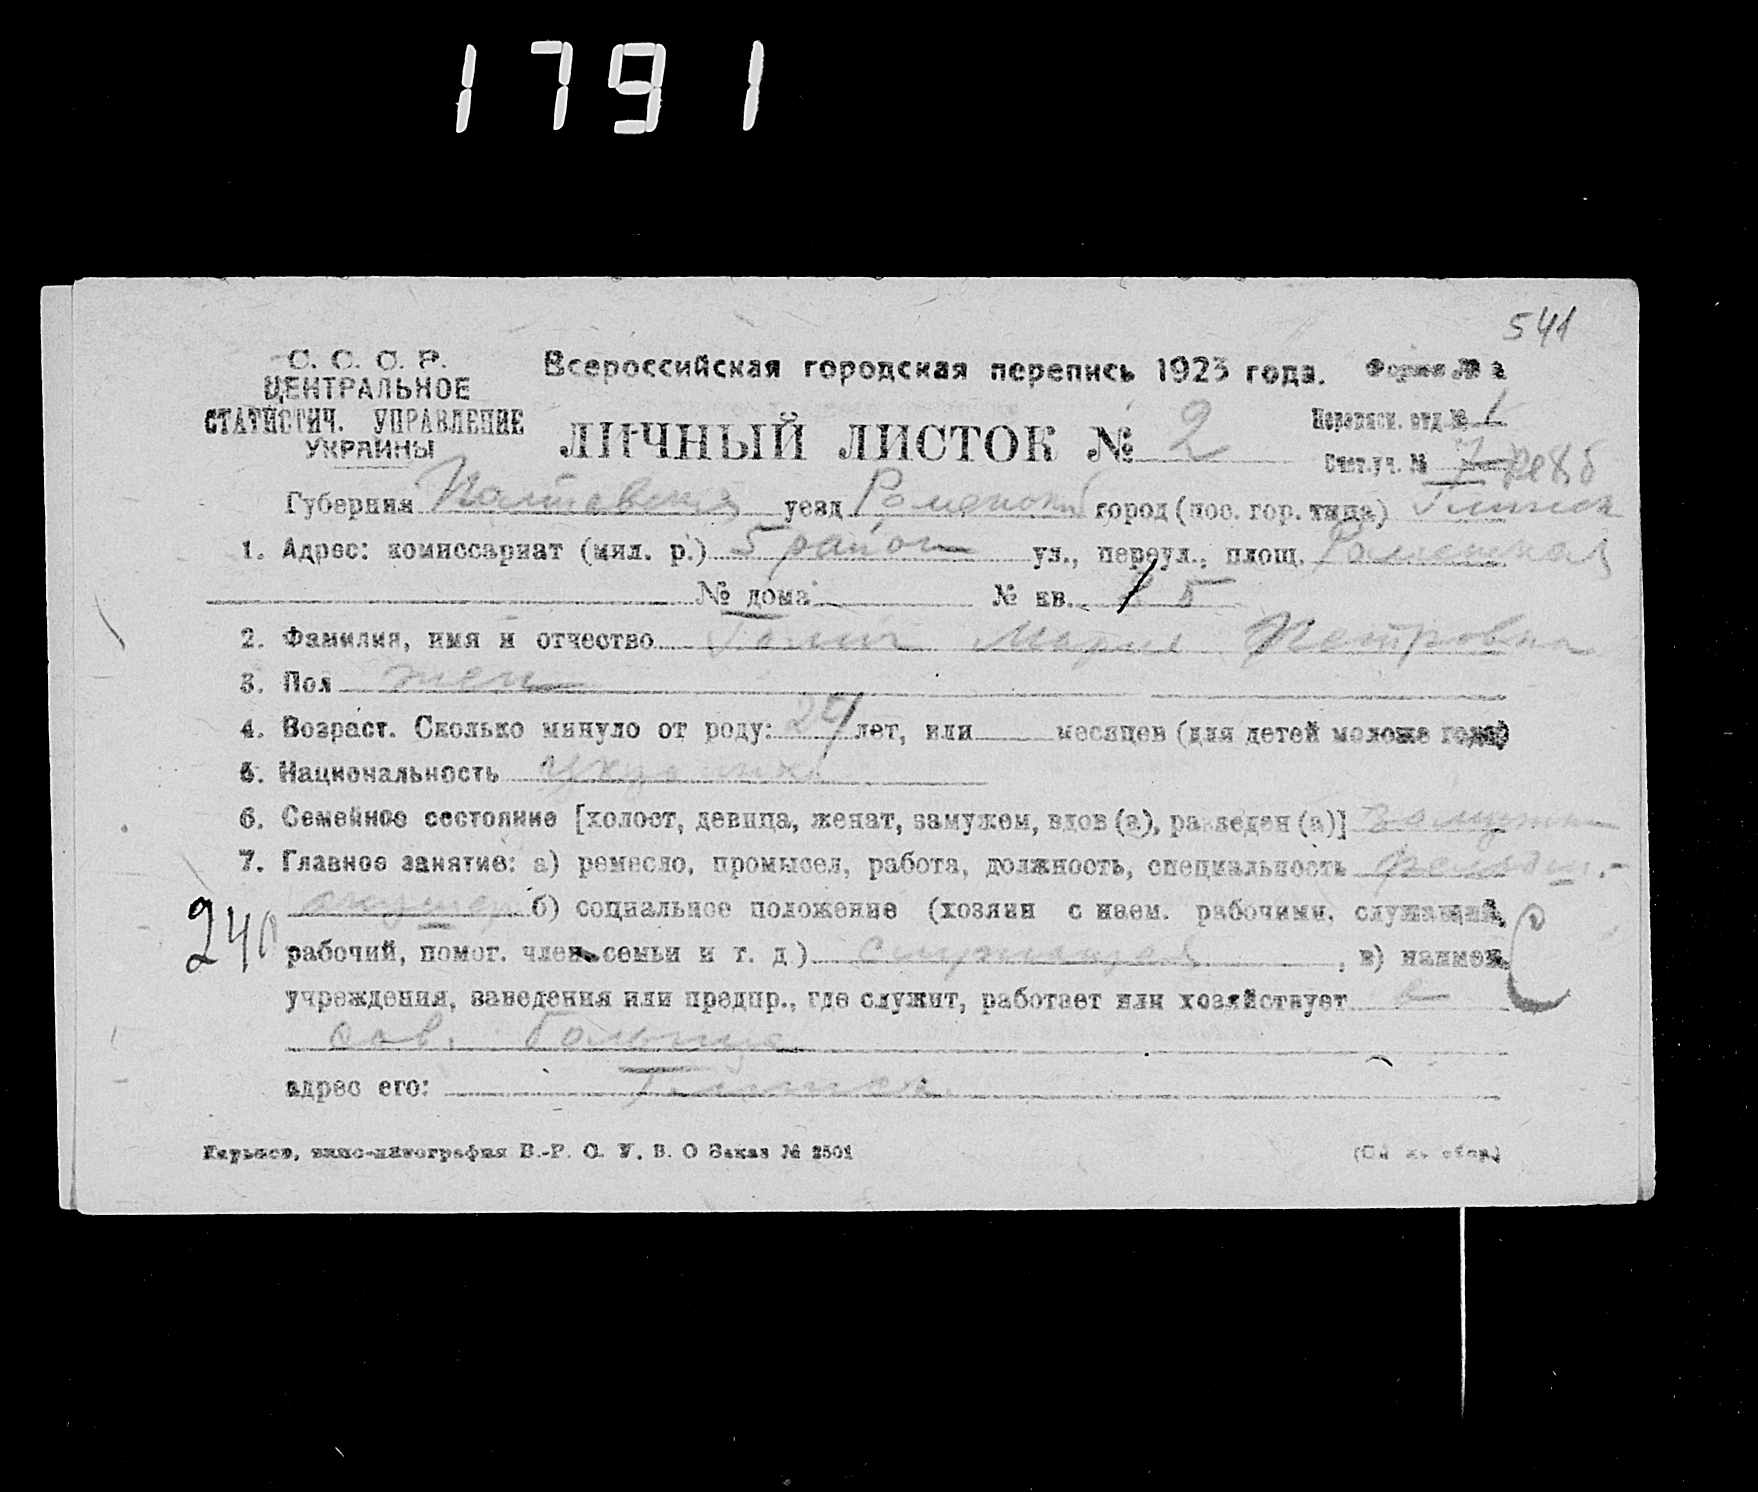 1791
541
С. С. С. Р.
ЦЕНТРАЛЬНОЕ
СТАТИСТИЧ. УПРАВЛЕНИЕ
УКРАИНЫ
Всероссийская городская перепись 1923 года. Форма №
ЛИЧНЫЙ ЛИСТОК № 2
Переписн. отд. № 1
Счет. уч. №
Губерния Полтавская уезд Роменский город (пос. гор. типа) Глинск
1. Адрес: комиссариат (мил. р.) 5 район ул., переул., площ. Роменская
№ дома № кв. 5
2. Фамилия, имя и отчество Мария Петровна
3. Пол жен
4. Возраст. Сколько минуло от роду: 29 лет, или месяцев (для детей моложе года)
5. Национальность Украинка
6. Семейное состояние [холост, девица, женат, замужем, вдов (а), разведен (а)] замужем
7. Главное занятие: а) ремесло, промысел, работа, должность, специальность фельдш.-
акушер. б) социальное положение (хозяин с наем. рабочими, служащий,
240
рабочий, помог. член семьи и т. д.) служащая, в) наимен.
учреждения, заведения или предпр., где служит, работает или хозяйствует в
сов. больнице
адрес его: Глинск
Харьков, типо-литография В. О Заказ № 2501